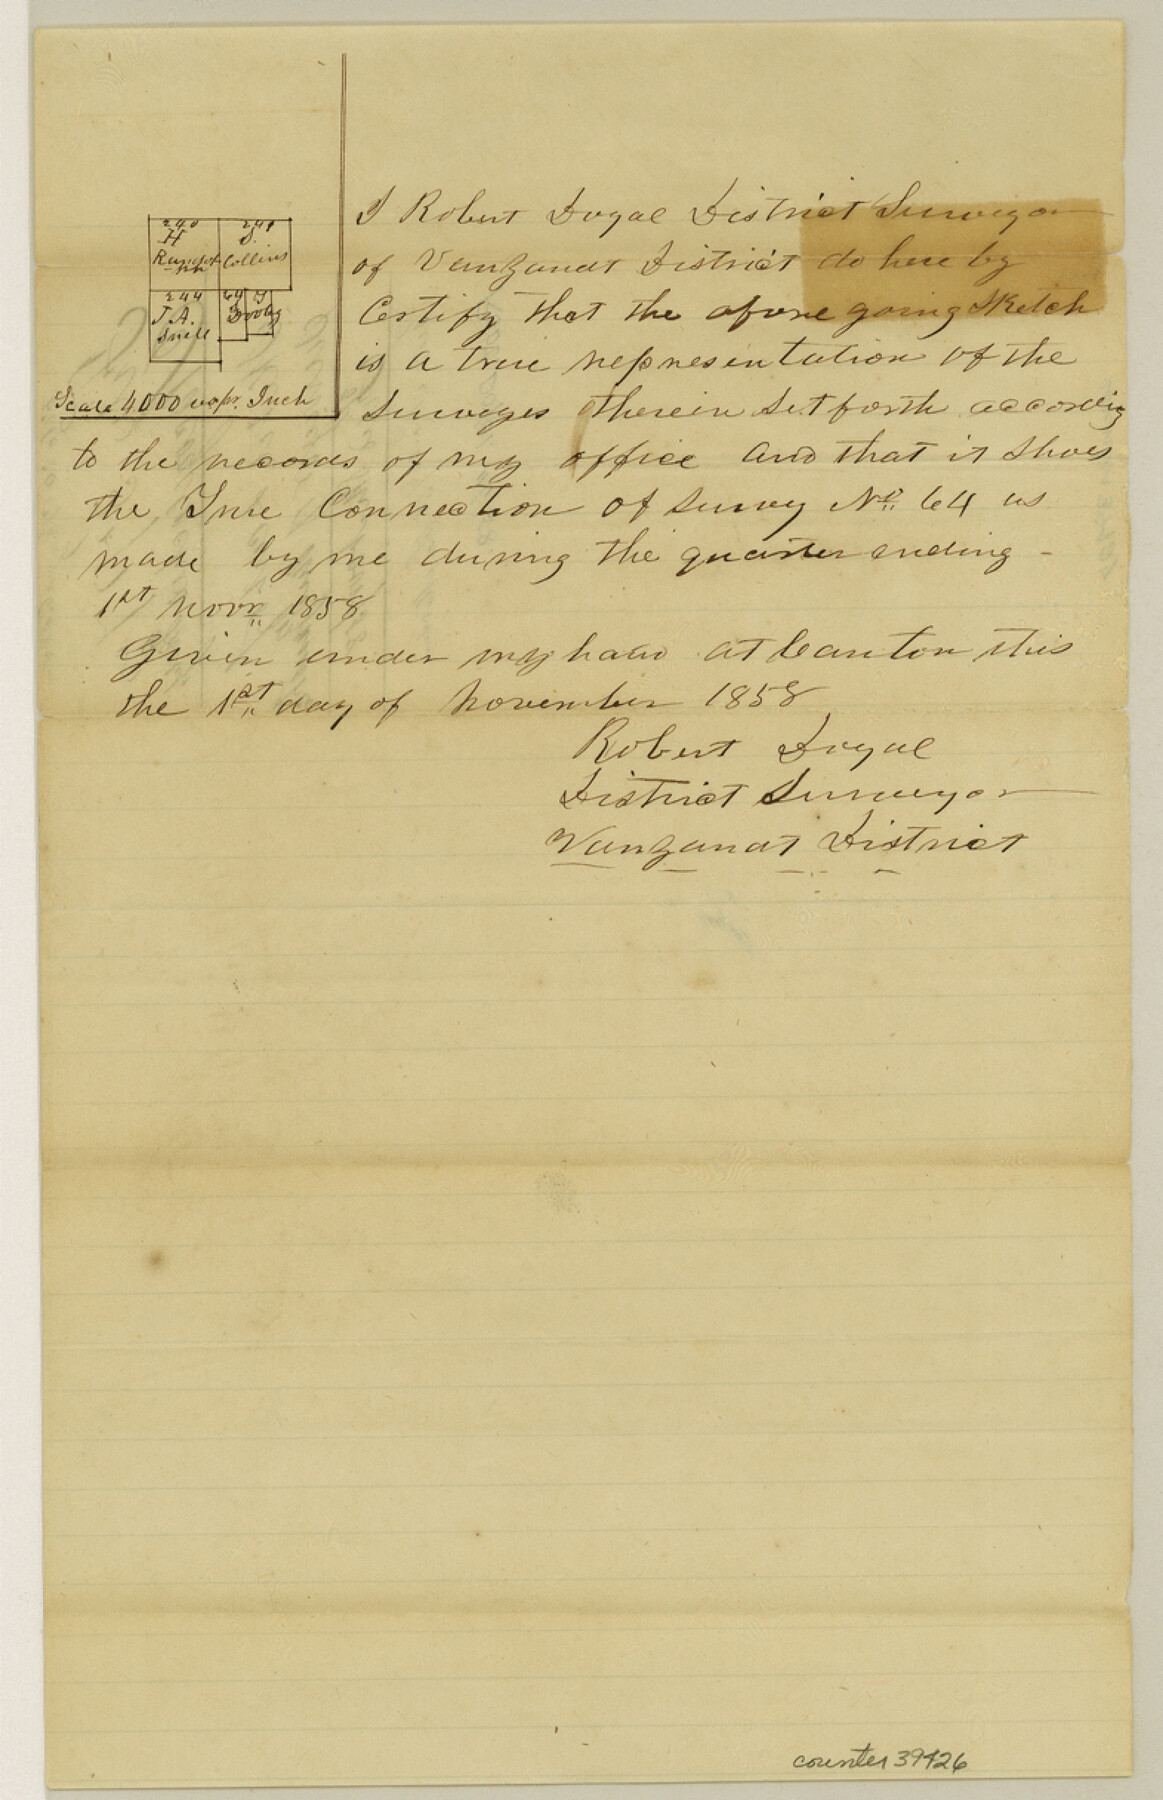 240
H
241
S.
Collins
244
T. A.
Snell
64
T
Scale 4000 vas pr. Inch
I Robert Doyal District Surveyor
of Vanzandt District do here by
Certify that the afore going Sketch
is a true representation of the
Surveyes therein Set forth according
to the records of my office and that it Shows
the True Connection of Survey No. 64 as
made by me during the quarter ending -
1st Novr. 1858
Given under my hand at Canton this
the 1st day of November 1858
Robert Doyal
District Surveyor
Vanzandt District
counter 39426